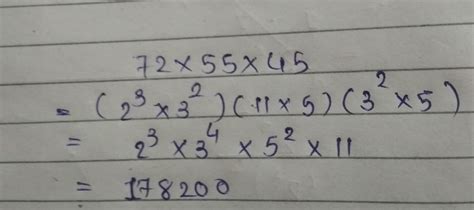 72×55×45
= (2³×3²)(11×5)(3²×5)
= 2³×3⁴×5²×11
= 178200